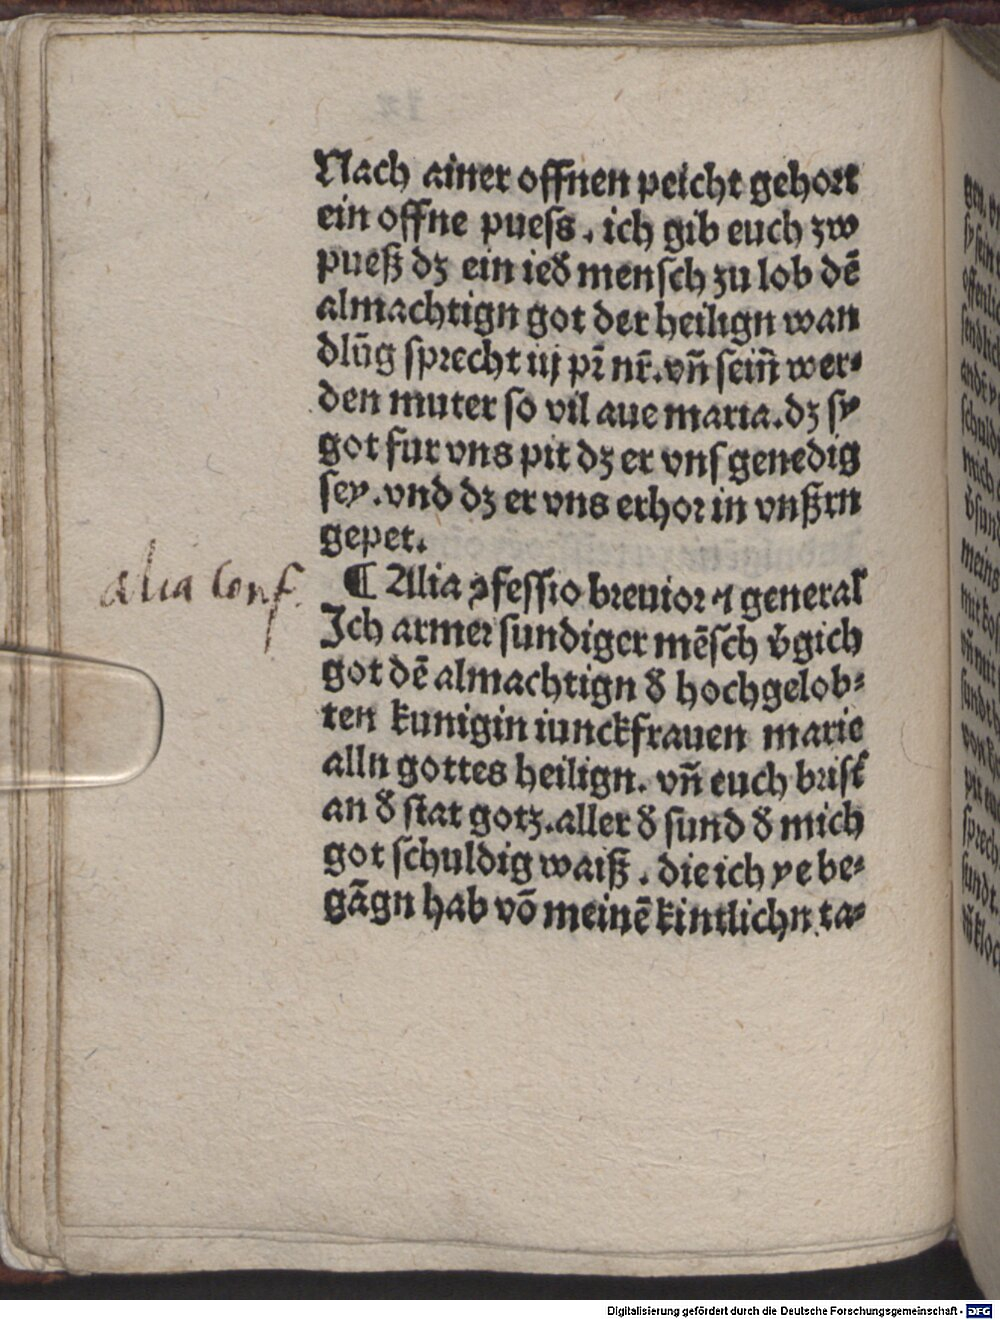 Nach ainer offnen peicht gehort
ein offne puess. ich gib euch zw
pueß dz ein ied̕ mensch zu lob dē
almachtign got der heilign wan
dlūg sprecht iij pr̄ nr̄. vn̄ sein̄ wer⸗
den muter so vil aue maria. dz sy
got fur vns pit dz er vnſ genedig
sey. vnd dz er vns erhor in vnßrn
gepet.
alia conf.
¶ Alia ꝯfessio breuior ⁊ general̕
Ich armer sundiger mēsch v̕gich
got dē almachtign d̕ hochgelob⸗
ten kunigin iunckfrauen marie
alln gottes heilign. vn̄ euch brisť
an d̕ stat gotz. aller d̕ sund d̕ mich
got schuldig waiß. die ich ye be⸗
gāgn hab vō meinē kintlichn ta⸗
Digitalisierung gefördert durch die Deutsche Forschungsgemeinschaft - DFG